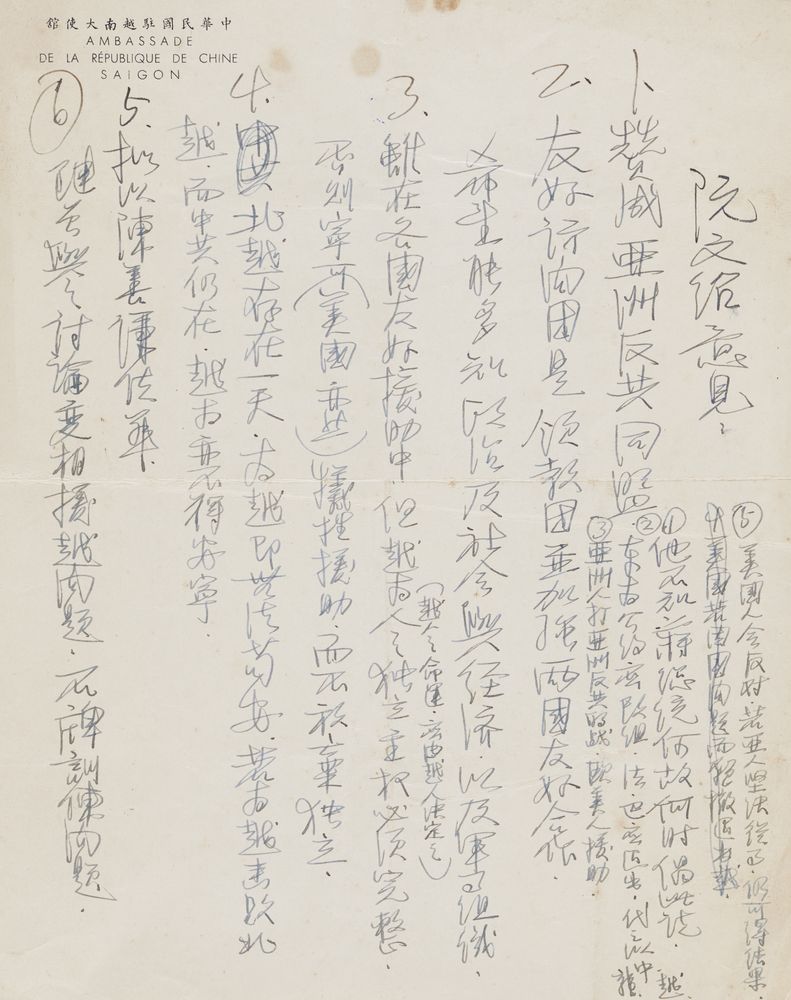 中華民國駐越南大使館
AMBASSADE
DE LA RÉPUBLIQUE DE CHINE
SAIGON
阮文紹意見:
1. 贊成亞洲反共同盟.
⑤美國人會反對.若亞人堅決從事.仍可得結果
④美國若因國內問題而須撤退南越
①他不知蔣總統何故何時倡此說.
②東南公約宜改組.法.巴應退出.代之以中越韓.
③亞洲人打亞洲反共的戰 歡美人援助
2. 友好訪問團是 領教團並加強兩國友好合作.
希望能多知政治及社會與經濟.以及軍事組織.
3. 雖在各國友好援助中 但越南人之獨立主权必須完整.
(越人之命運.實由越人決定之)
否則寧可(美國亦然)犧牲援助.而不放棄独立.
4. 北越存在一天.南越即無法苟安.若南越击敗北
越.而中共仍在.越南亦不得安寧.
5. 擬以陳善謙使華.
⑥ 陳善與之討論變相援越問題.石牌訓練問題.